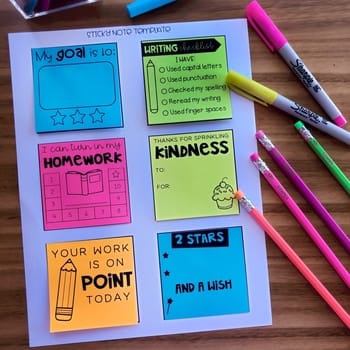 STICKY NOTE TEMPLATE
My GOAL is to:
WRITING checklist
I HAVE
Used capital letters
Used punctuation
Checked my spelling
Reread my writing
Used finger spaces
I can turn in my
HOMEWORK
THANKS FOR SPRINKLING
KINDNESS
TO:
FOR:
YOUR WORK
IS ON
POINT
TODAY
2 STARS
AND A WISH
Sharpie
Sharpie